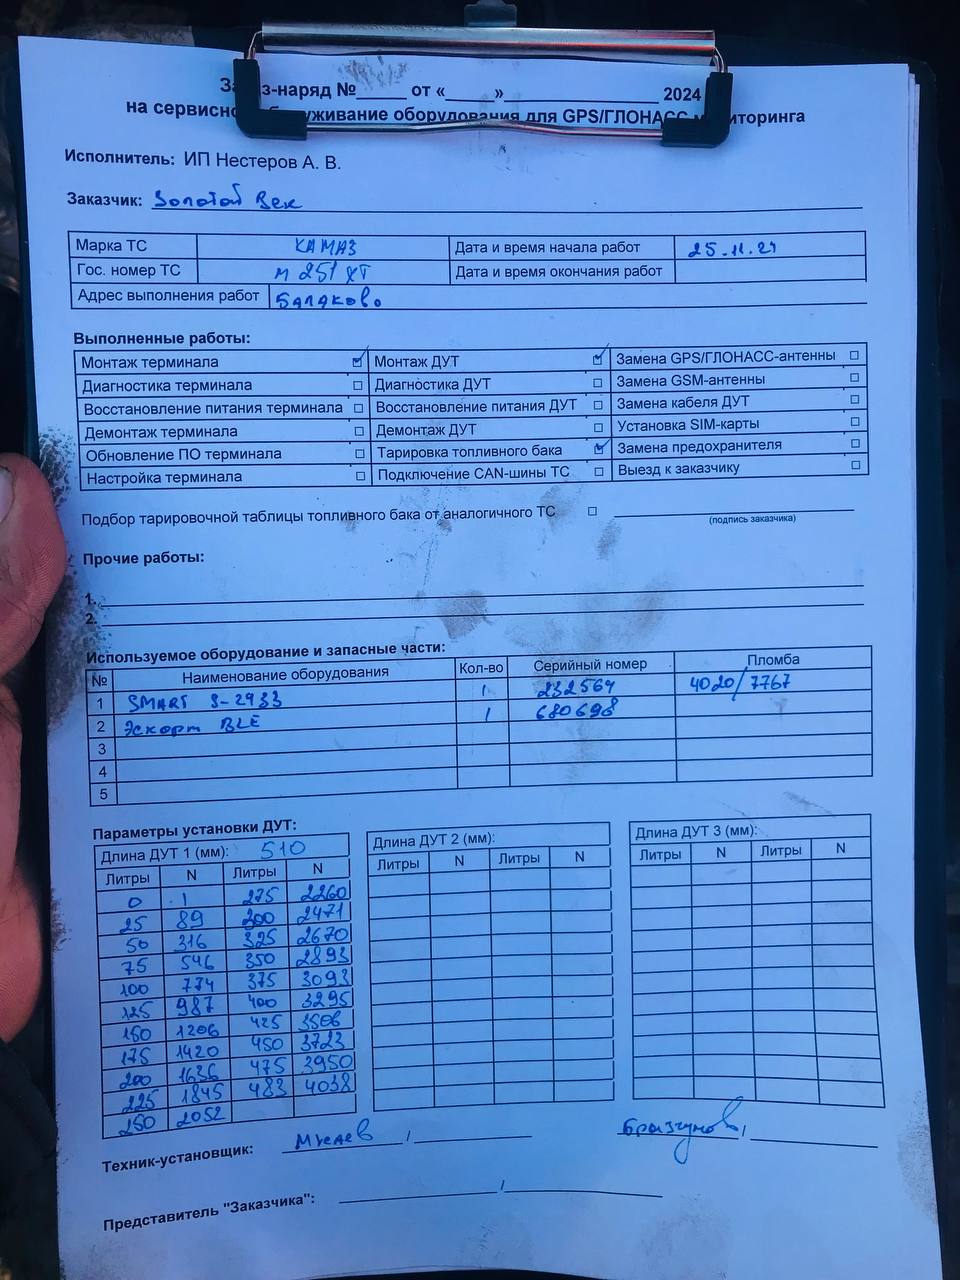 Заказ-наряд №_____ от «____»______________ 2024
на сервисное обслуживание оборудования для GPS/ГЛОНАСС мониторинга
Исполнитель: ИП Нестеров А. В.
Заказчик: Золотой Век
Марка ТС КАМАЗ Дата и время начала работ 25.11.24
Гос. номер ТС М 251 ХТ Дата и время окончания работ
Адрес выполнения работ Балаково
Выполненные работы:
Монтаж терминала ☑ Монтаж ДУТ ☑ Замена GPS/ГЛОНАСС-антенны ☐
Диагностика терминала ☐ Диагностика ДУТ ☐ Замена GSM-антенны ☐
Восстановление питания терминала ☐ Восстановление питания ДУТ ☐ Замена кабеля ДУТ ☐
Демонтаж терминала ☐ Демонтаж ДУТ ☐ Установка SIM-карты ☐
Обновление ПО терминала ☐ Тарировка топливного бака ☑ Замена предохранителя ☐
Настройка терминала ☐ Подключение CAN-шины ТС ☐ Выезд к заказчику ☐
Подбор тарировочной таблицы топливного бака от аналогичного ТС ☐
(подпись заказчика)
Прочие работы:
1.
2.
Используемое оборудование и запасные части:
№ Наименование оборудования Кол-во Серийный номер Пломба
1 SMART S-2433 1 232564 4020/7767
2 Эскорт BLE 1 680698
3
4
5
Параметры установки ДУТ:
Длина ДУТ 1 (мм): 510 Длина ДУТ 2 (мм): Длина ДУТ 3 (мм):
Литры N Литры N Литры N Литры N Литры N Литры N
0 1 275 2260
25 89 300 2471
50 316 325 2670
75 546 350 2893
100 774 375 3093
125 987 400 3295
150 1206 425 3506
175 1420 450 3723
200 1636 475 3950
225 1845 483 4038
250 2052
Техник-установщик: / /
Представитель "Заказчика": /